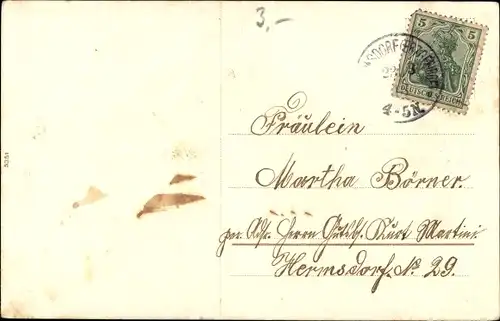 3,-
5 5
DEUTSCHES REICH
4-5N.
Fräulein
Martha Börner.
per Adr. Herrn Gutsb. Kurt Martini
Hermsdorf. No 29.
5351